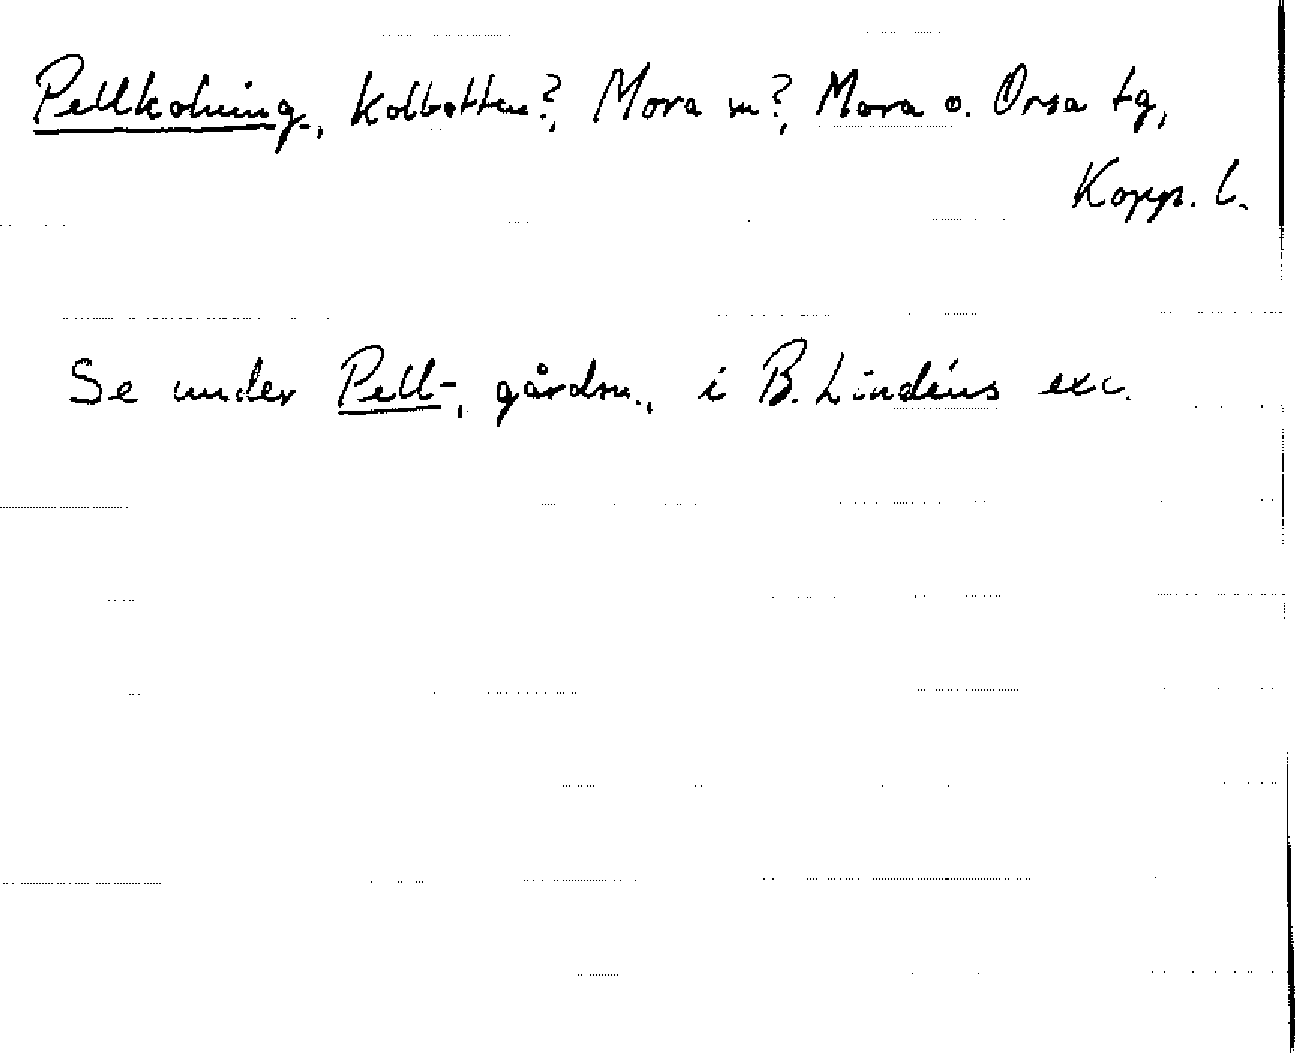 Pellkolning, Kolbotten?, Mora sn?, Mora o. Orsa tg,
Kopp. l.
Se under Pell-, gårdsn., i B. Lindéns exc.